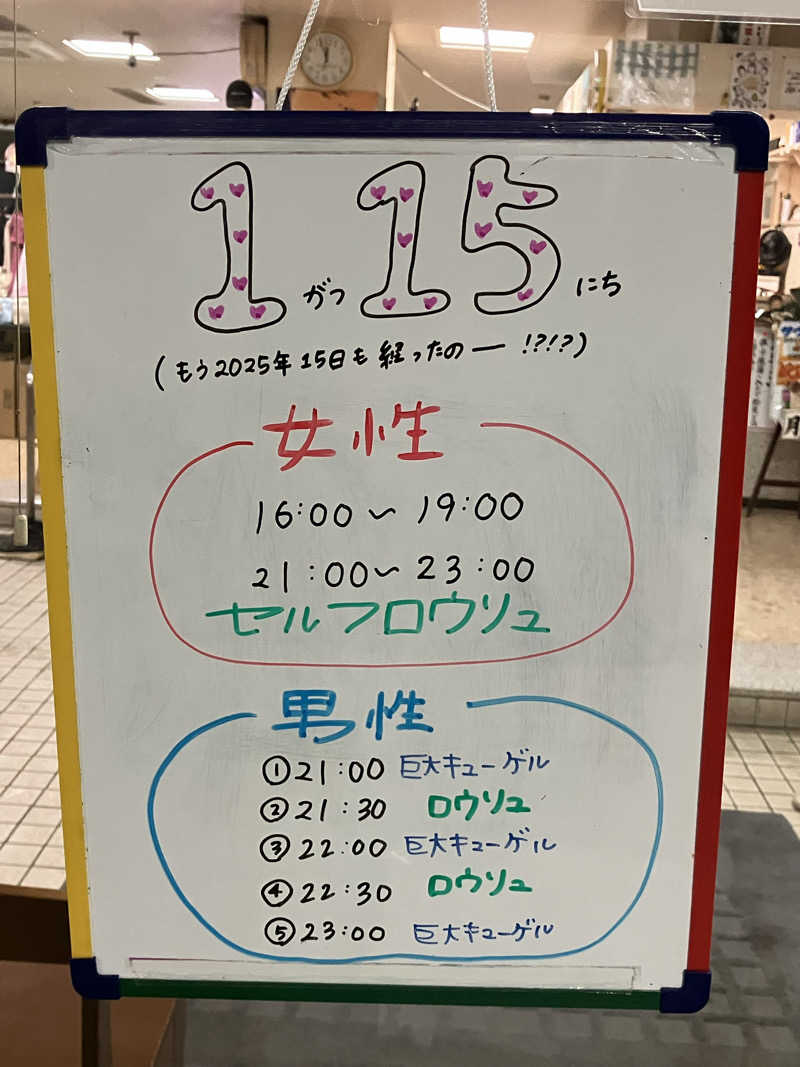 1がつ15にち
(もう2025年15日も経ったのー!?!?)
女性
16:00〜19:00
21:00〜23:00
セルフロウリュ
男性
①21:00 巨大キューゲル
②21:30 ロウリュ
③22:00 巨大キューゲル
④22:30 ロウリュ
⑤23:00 巨大キューゲル
月